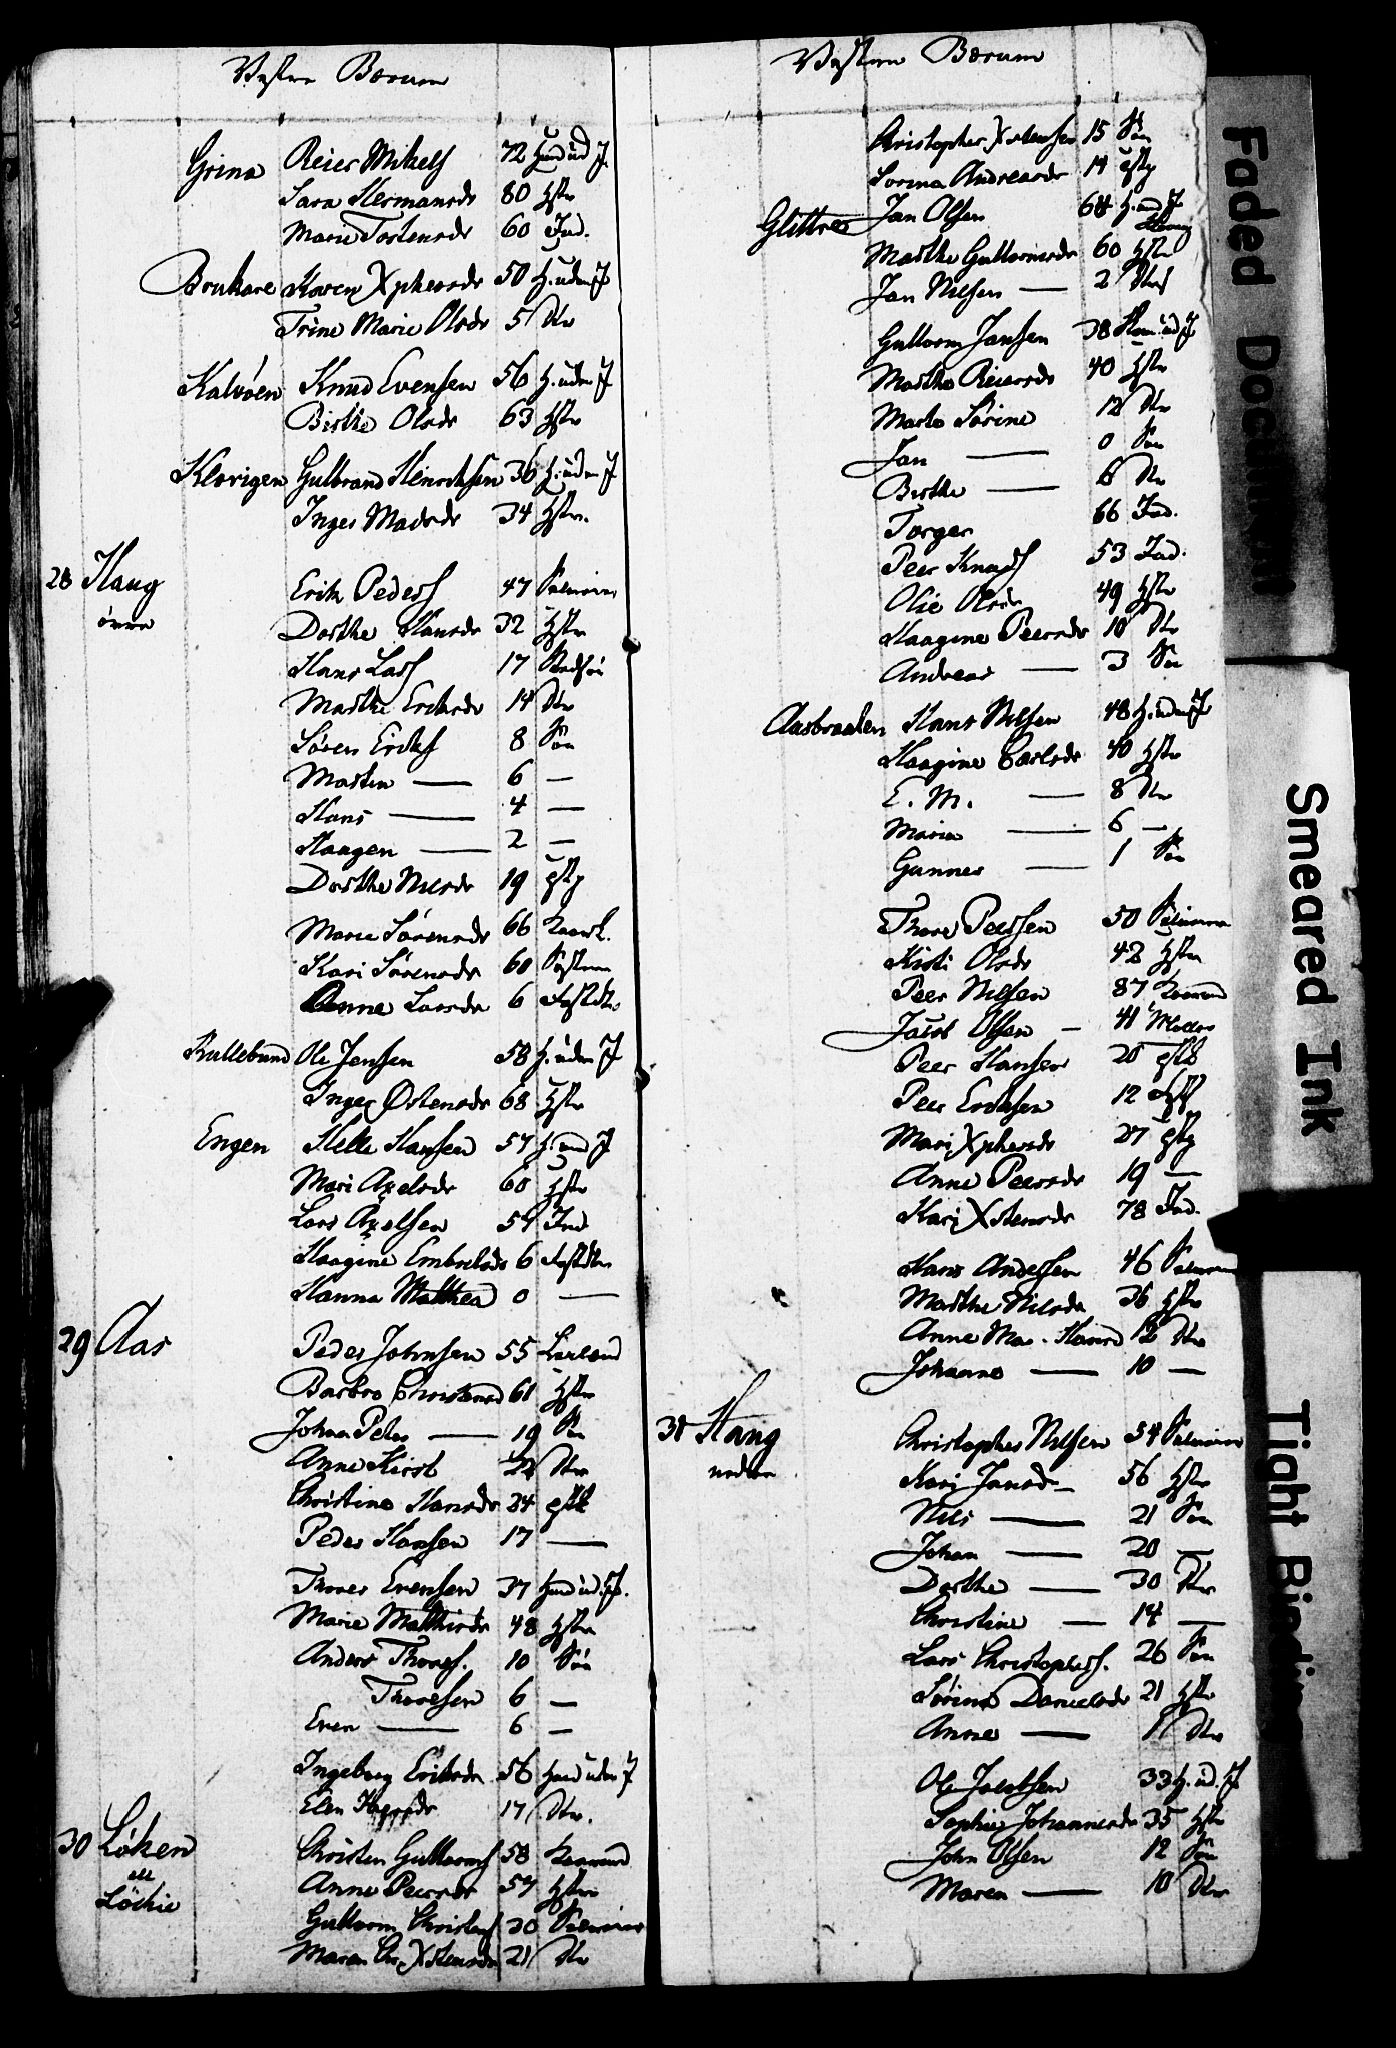 Vestre Bærum
Grina Reier Mikels 72 Huusmd u J.
Sara Hermansdr 80 Hstr
Marie Tostensdr 60 Ind.
Bruhave Maren Xphersdr 50 H. uden J
Trine Marie Olsdr 5 Dtr
Kalvöen Knud Evensen 56 H. uden J
Birthe Olsdr 63 Hstr
Klovigen Gulbrand Henrichsen 36 H. uden J
Inger Madsdr 34 Hstr.
28 Haug Erik Peders 47 Selveier
övre
Dorthe Hansdr 32 Hstr
Hans Lars 17 Stedsön
Marthe Eriksdr 14 Dtr
Sören Eriks 8 Sön
Morten — 6 —
Hans — 4 —
Haagen — 2 —
Dorthe Nilsdr 19 Tstp
Maria Sörensdr 66
Kari Sörensdr 60 Söstren
Anne Larsdr 6 Fostdtr
Kullebund Ole Jensen 58 H. uden J
Inger Østensdr 68 Hstr
Engen Helle Hansen 57 H. md J
Mari Axelsdr 60 Hstr
Lars Axelsen 54 Ind
Haagine Embretsdr 6 Fostdtr
Hanna Mathea 0 —
29 Aas Peder Johnsen 55 Leilænd
Barbro Christensd 61 Hstr
Johan Peter — 19 Sön
Anne Kirst 22 Dtr
Christine Hansdr 24 Tstf
Peder Hansen 17 —
Thores Evensen 37 Huusmd ud. J.
Marie Mathisdr 48 Hstr
Anders Thores. 10 Sön
Thoresen 6 —
Even — 6 —
Ingeborg Eriksdr 56 Huusmd uden J
Elen 17 Dtr.
30 Löken Christen Guttorms 58 Kaarmd
ell
Löchie
Anne Peersdr 57 Hstr
Guttorm Christens 30 Selveier
Maren Chr. Xstensdr 21 Dtr
Vestre Bærum
Christopher Xstensen 15 Sön
Sorina Andreasdr 14 Tstp
Glittre Jan Olsen 68 H. md J
Marthe Guttormsdr 60 Hstr
Jan Nilsen — 2
Guttorm Jansen 38 ud J
Marthe Reiersdr 40 Hstr
Marte Sörine 12 Dtr
Jan — 0 Sön
Birthe — 6 Dtr
Torger 66 Ind.
Peer Knuds 53 Ind.
Olie Olsdr 49 Hstr
Haagine Peersdr 10 Dtr
Andreas — 3 Sön
Aasbraaten Hans Nilsen 48 H. uden J
Haagine Carlsdr 40 Hstr
E. M. — 8 Dtr
Maria — 6 —
Gunner — 1 Sön
Thore Peersen 50 Selveier
Kisti Olsdr 42 Hstr
Peer Nilsen 87 Kaarmd
Jacob Olsen — 41
Peer Hansen 20 Tstk
Peer Eriksen 12
Mari Xphersdr 27 Tstp
Anne Peersdr 19 —
Kari Xstensdr 78 Ind.
Hans Andersen 46 Selveier
Marthe Nilsdr 36 Hstr
Anne Ma. Hansd 12 Dtr
Johanne — 10 —
31 Haug Christopher Nilsen 54 Selveier
nedre
Kari Jansdr — 56 Hstr
Nils — 21 Sön
Johan — 20 —
Dorthe — 30 Dtr
Christine — 14 —
Lars Christophers. 26 Sön
Sörine Danielsdr 21 Hstr
Anne — 1 Dtr
Ole Jacobsen 33 H. ud. J
Sophie Johannesdr 35 Hstr
John Olsen 12 Sön
Maren — 10 Dtr
Faded Document
Smeared Ink
Tight Binding